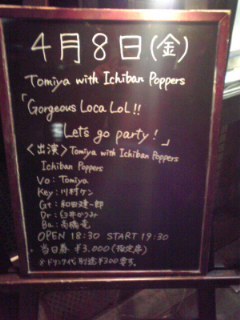 4月8日(金)
Tomiya with Ichiban Poppers
「Gorgeous Loca LoL!!
Let's go party!」
<出演> Tomiya with Ichiban Poppers
Ichiban Poppers
Vo: Tomiya
Key: 川村ケン
Gt: 和田建一郎
Dr: 臼井かつみ
Ba: 高橋竜
OPEN 18:30 START 19:30
当日券 ¥3,000 (指定席)
※ドリンク代別途¥500